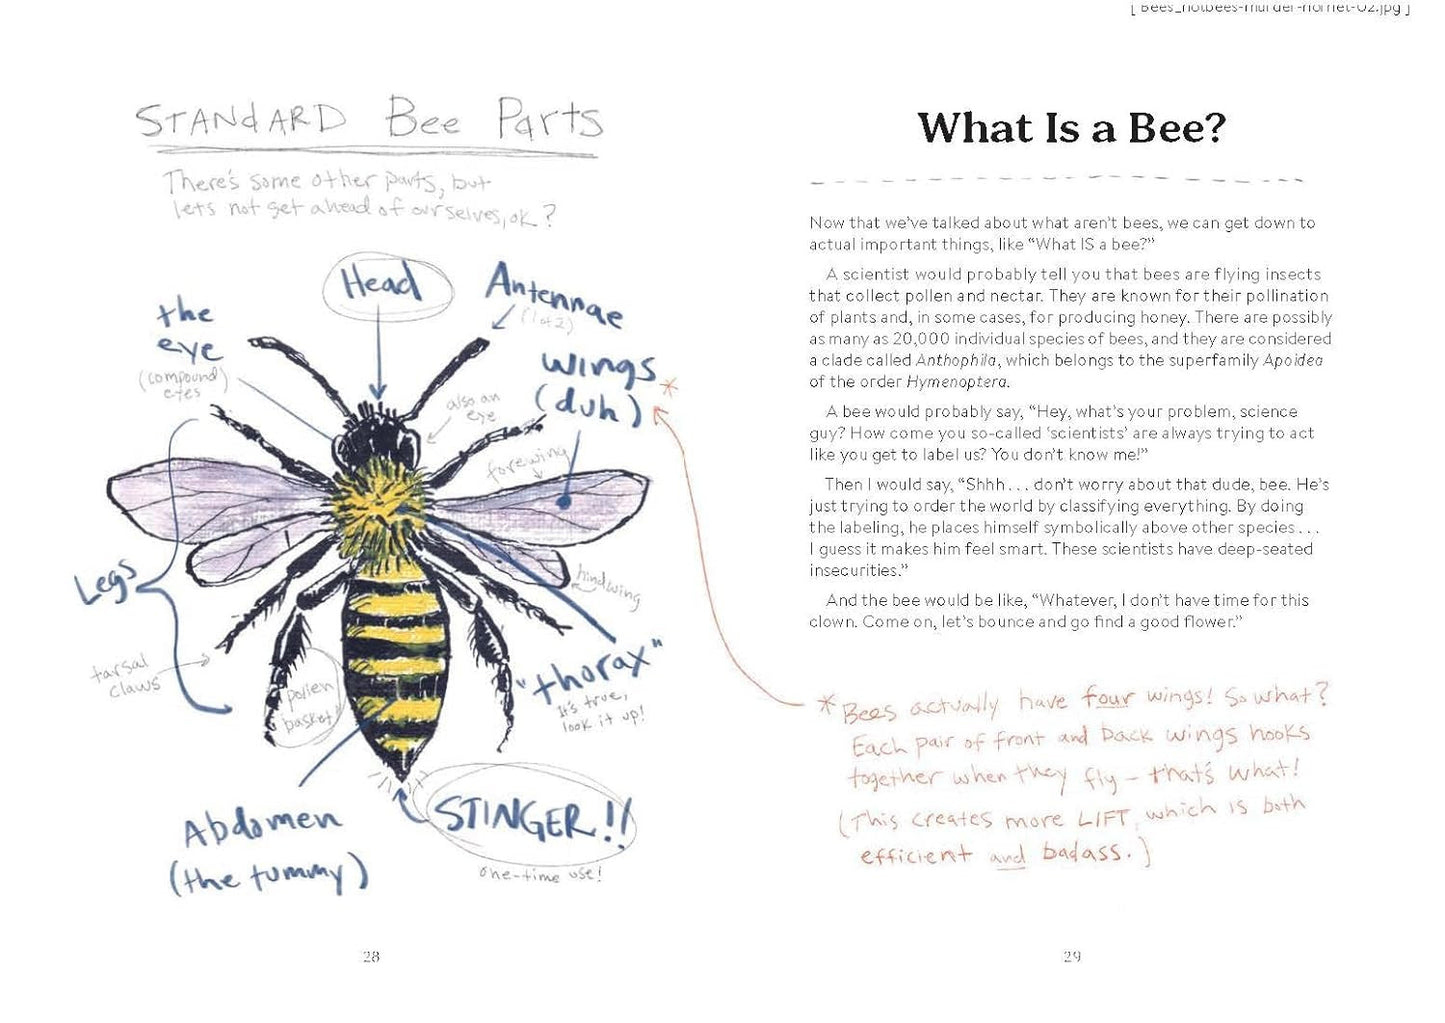 [ Bees_notbees-murder-hornet-02.jpg ]
STANdARD Bee Parts
There's some other parts, but
lets not get ahead of ourselves, ok?
Head
Antennae
(1 of 2)
the
eye
(compound)
eyes
wings *
(duh)
also an
eye
forewing
Legs
hindwing
tarsal
claws
pollen
basket!
"thorax"
It's true,
look it up!
Abdomen
(the tummy)
STINGER!!
one-time use!
28
What Is a Bee?
Now that we've talked about what aren't bees, we can get down to
actual important things, like “What IS a bee?”
A scientist would probably tell you that bees are flying insects
that collect pollen and nectar. They are known for their pollination
of plants and, in some cases, for producing honey. There are possibly
as many as 20,000 individual species of bees, and they are considered
a clade called Anthophila, which belongs to the superfamily Apoidea
of the order Hymenoptera.
A bee would probably say, “Hey, what's your problem, science
guy? How come you so-called ‘scientists’ are always trying to act
like you get to label us? You don't know me!”
Then I would say, “Shhh . . . don't worry about that dude, bee. He's
just trying to order the world by classifying everything. By doing
the labeling, he places himself symbolically above other species . . .
I guess it makes him feel smart. These scientists have deep-seated
insecurities.”
And the bee would be like, “Whatever, I don't have time for this
clown. Come on, let's bounce and go find a good flower.”
* Bees actually have four wings! So what?
Each pair of front and back wings hooks
together when they fly – that's what!
(This creates more LIFT, which is both
efficient and badass.)
29